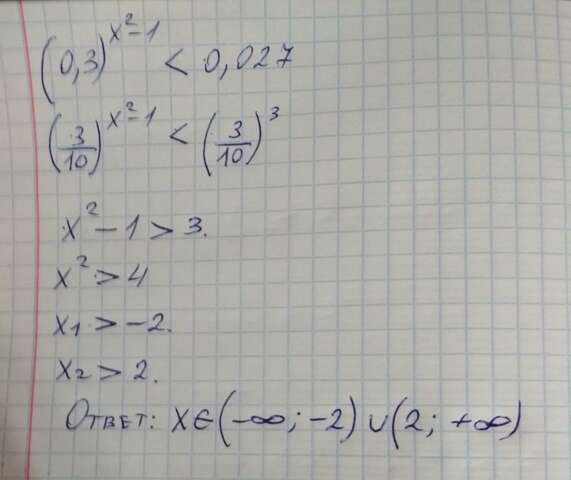 (0,3)^x²-1 < 0,027
(3/10)^x²-1 < (3/10)^3
x² - 1 > 3.
x² > 4
x₁ > -2.
x₂ > 2.
Ответ: x∈(-∞; -2) ∪ (2; +∞)